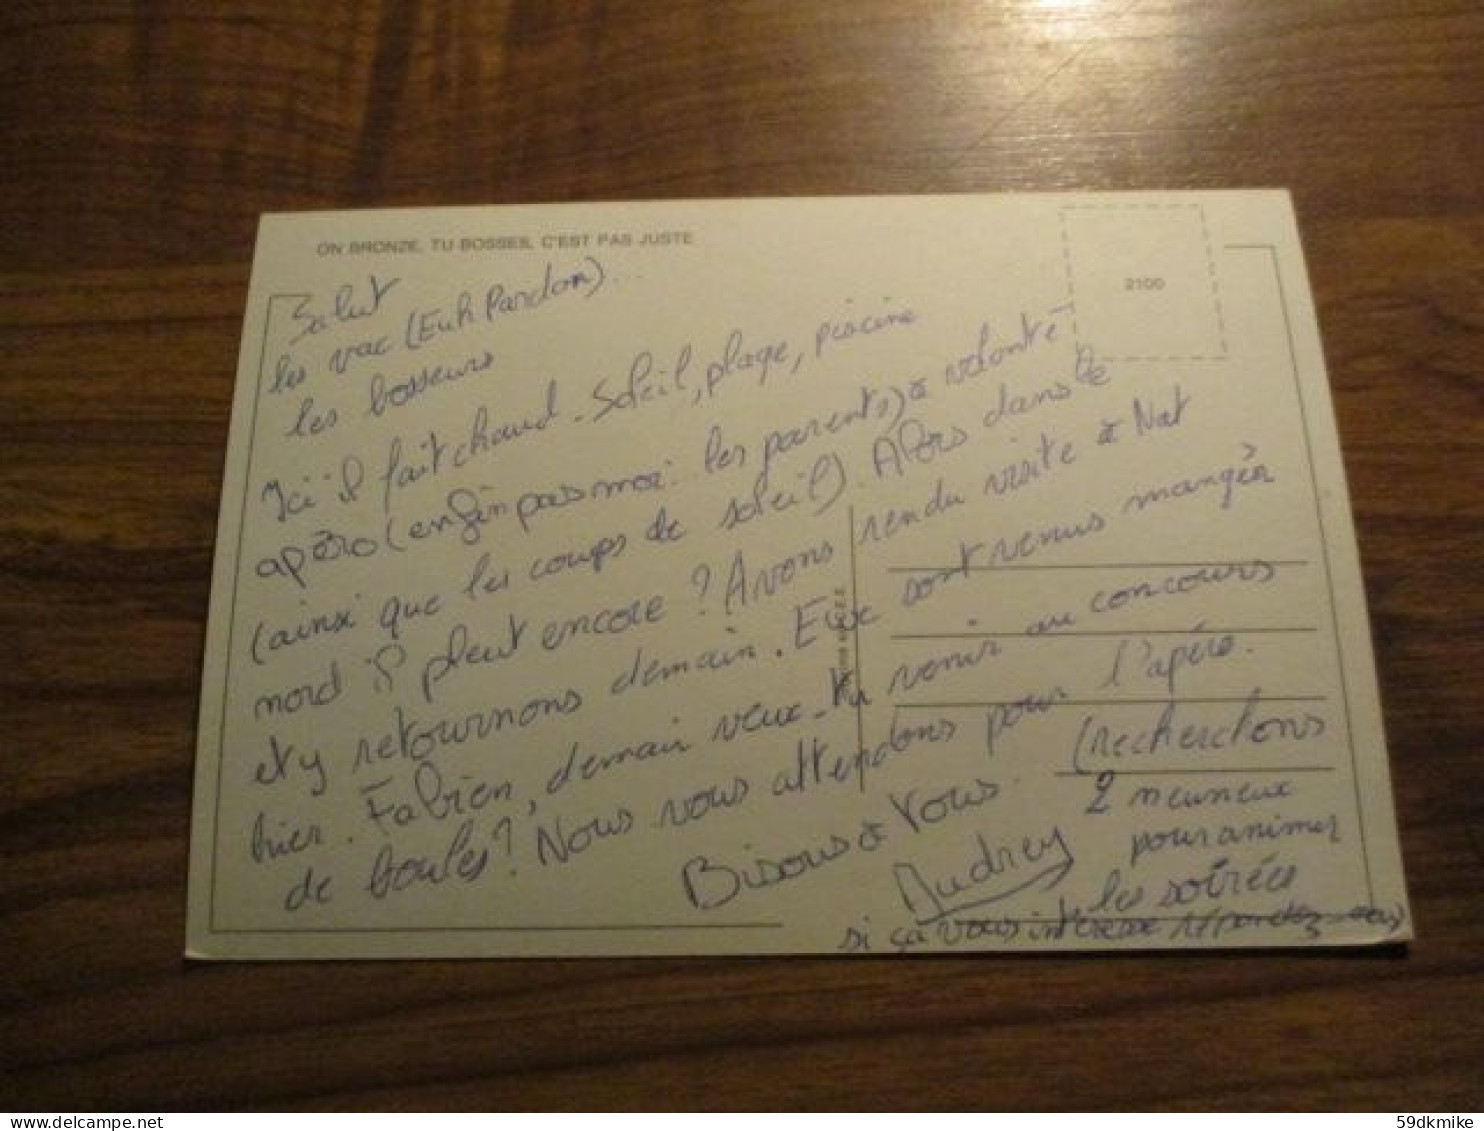 ON BRONZE, TU BOSSES, C'EST PAS JUSTE
2100
Salut
les vac (Euh Pardon)...
les bosseurs
Ici il fait chaud. Soleil, plage, piscine
apéro (enfin pas moi : les parents) à volonté
(ainsi que les coups de soleil). Alors dans le
nord il pleut encore ? Avons rendu visite à Nat
et y retournons demain. Eux sont venus manger
hier. Fabien, demain veux-tu venir au concours
de boules ? Nous vous attendons pour l'apéro.
Bisous à vous.
Audrey
(recherchons
2 neuneux
pour animer
les soirées
si ça vous intéresse répondez-nous)
59dkmike